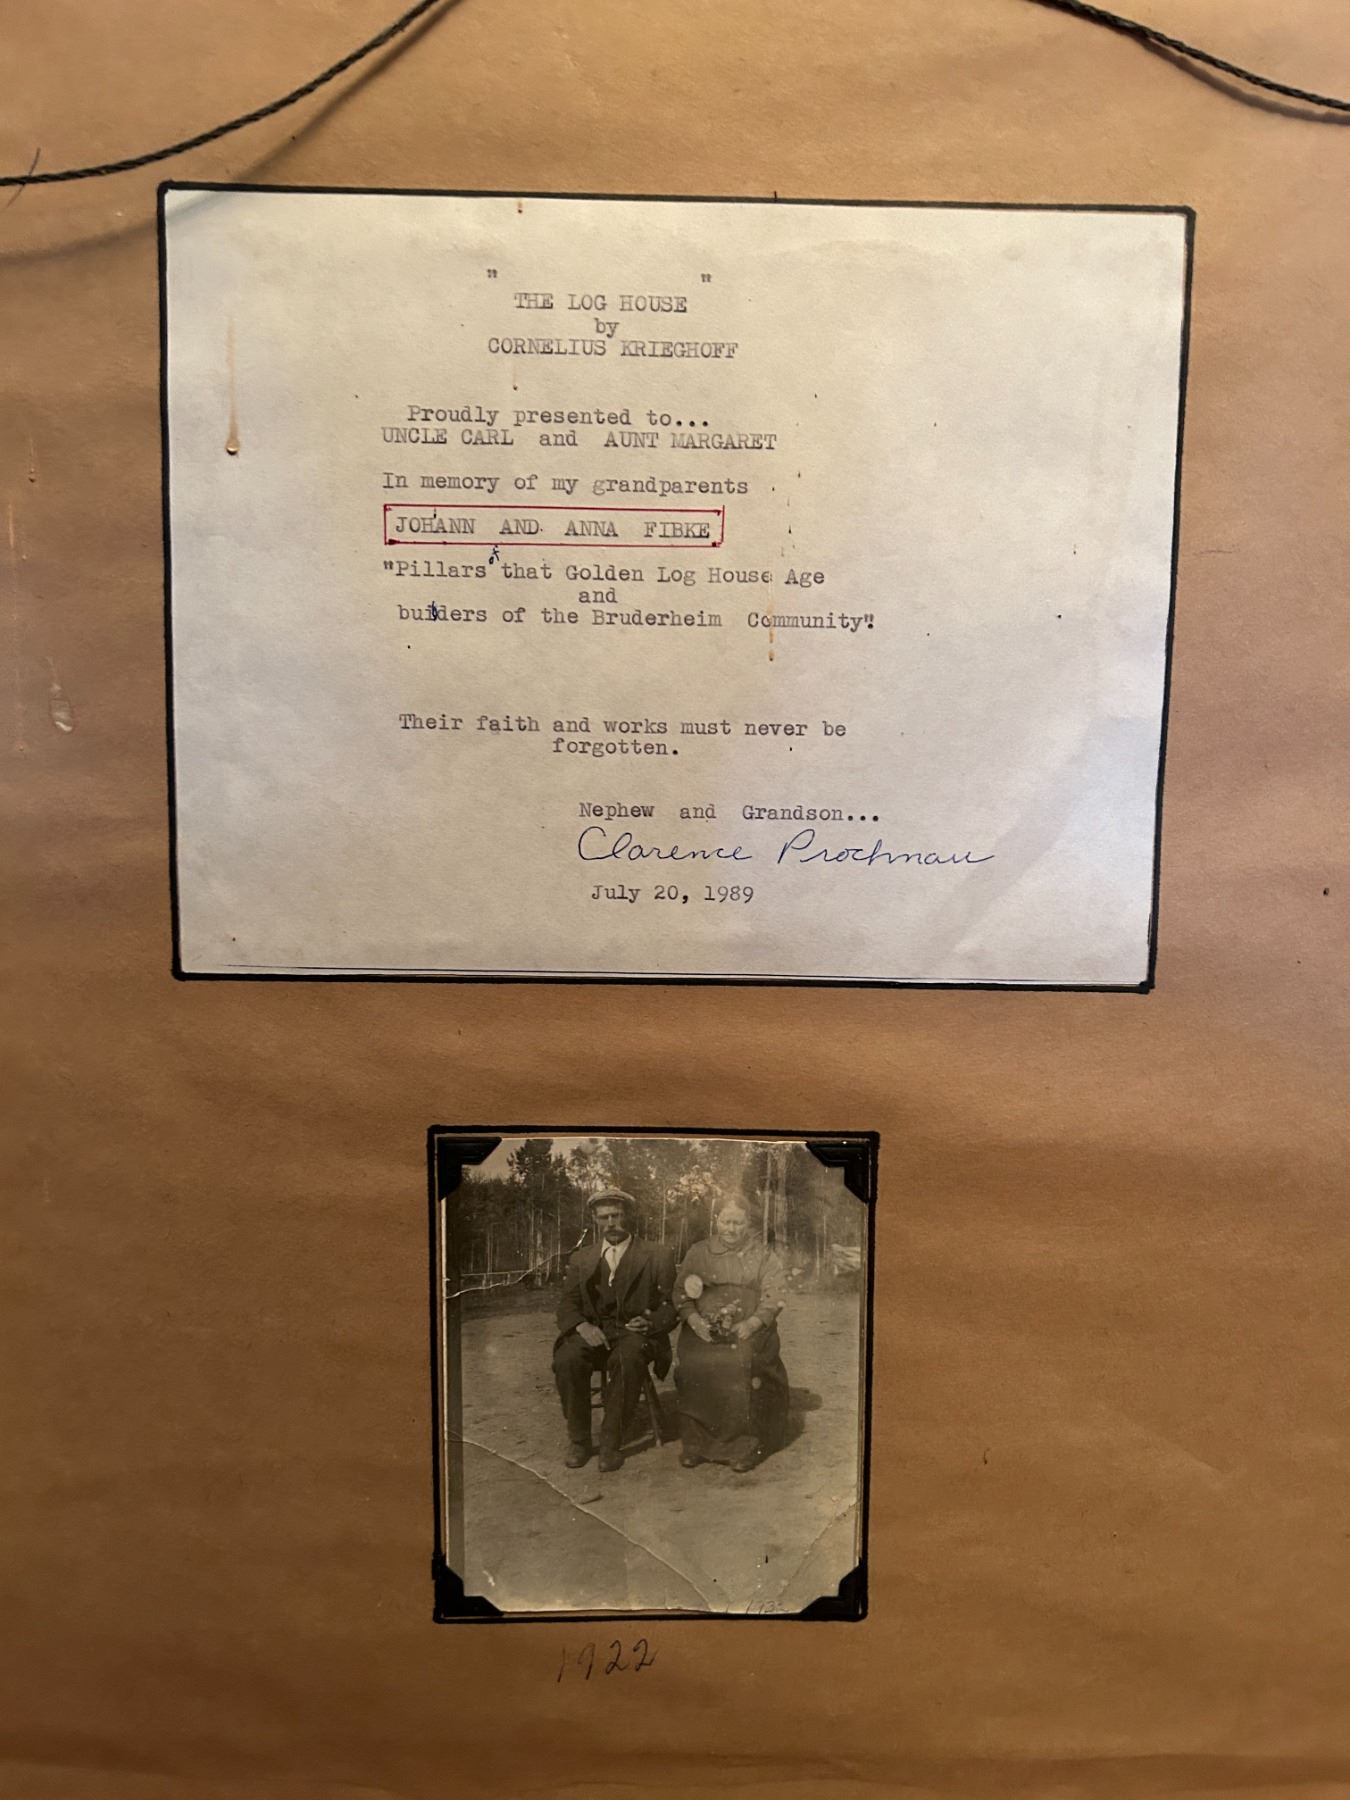 " "
THE LOG HOUSE
by
CORNELIUS KRIEGHOFF
Proudly presented to...
UNCLE CARL and AUNT MARGARET
In memory of my grandparents
JOHANN AND ANNA FIBKE
of
"Pillars that Golden Log House Age
and
builders of the Bruderheim Community".
Their faith and works must never be
forgotten.
Nephew and Grandson...
Clarence Prochnau
July 20, 1989
1922